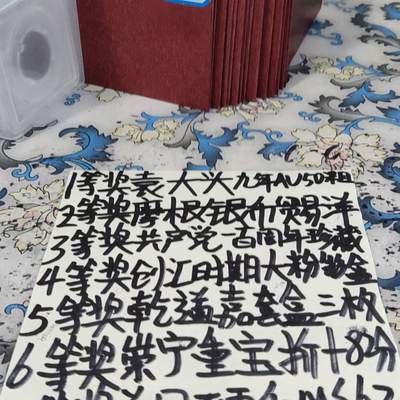 1等奖袁大头九年AU50粗
2等奖摩根银币贸易洋
3等奖共产党一百周年珍藏
4等奖创汇时期大粉盒金
5等奖乾道嘉套盒三板
6等奖崇宁重宝折十82分